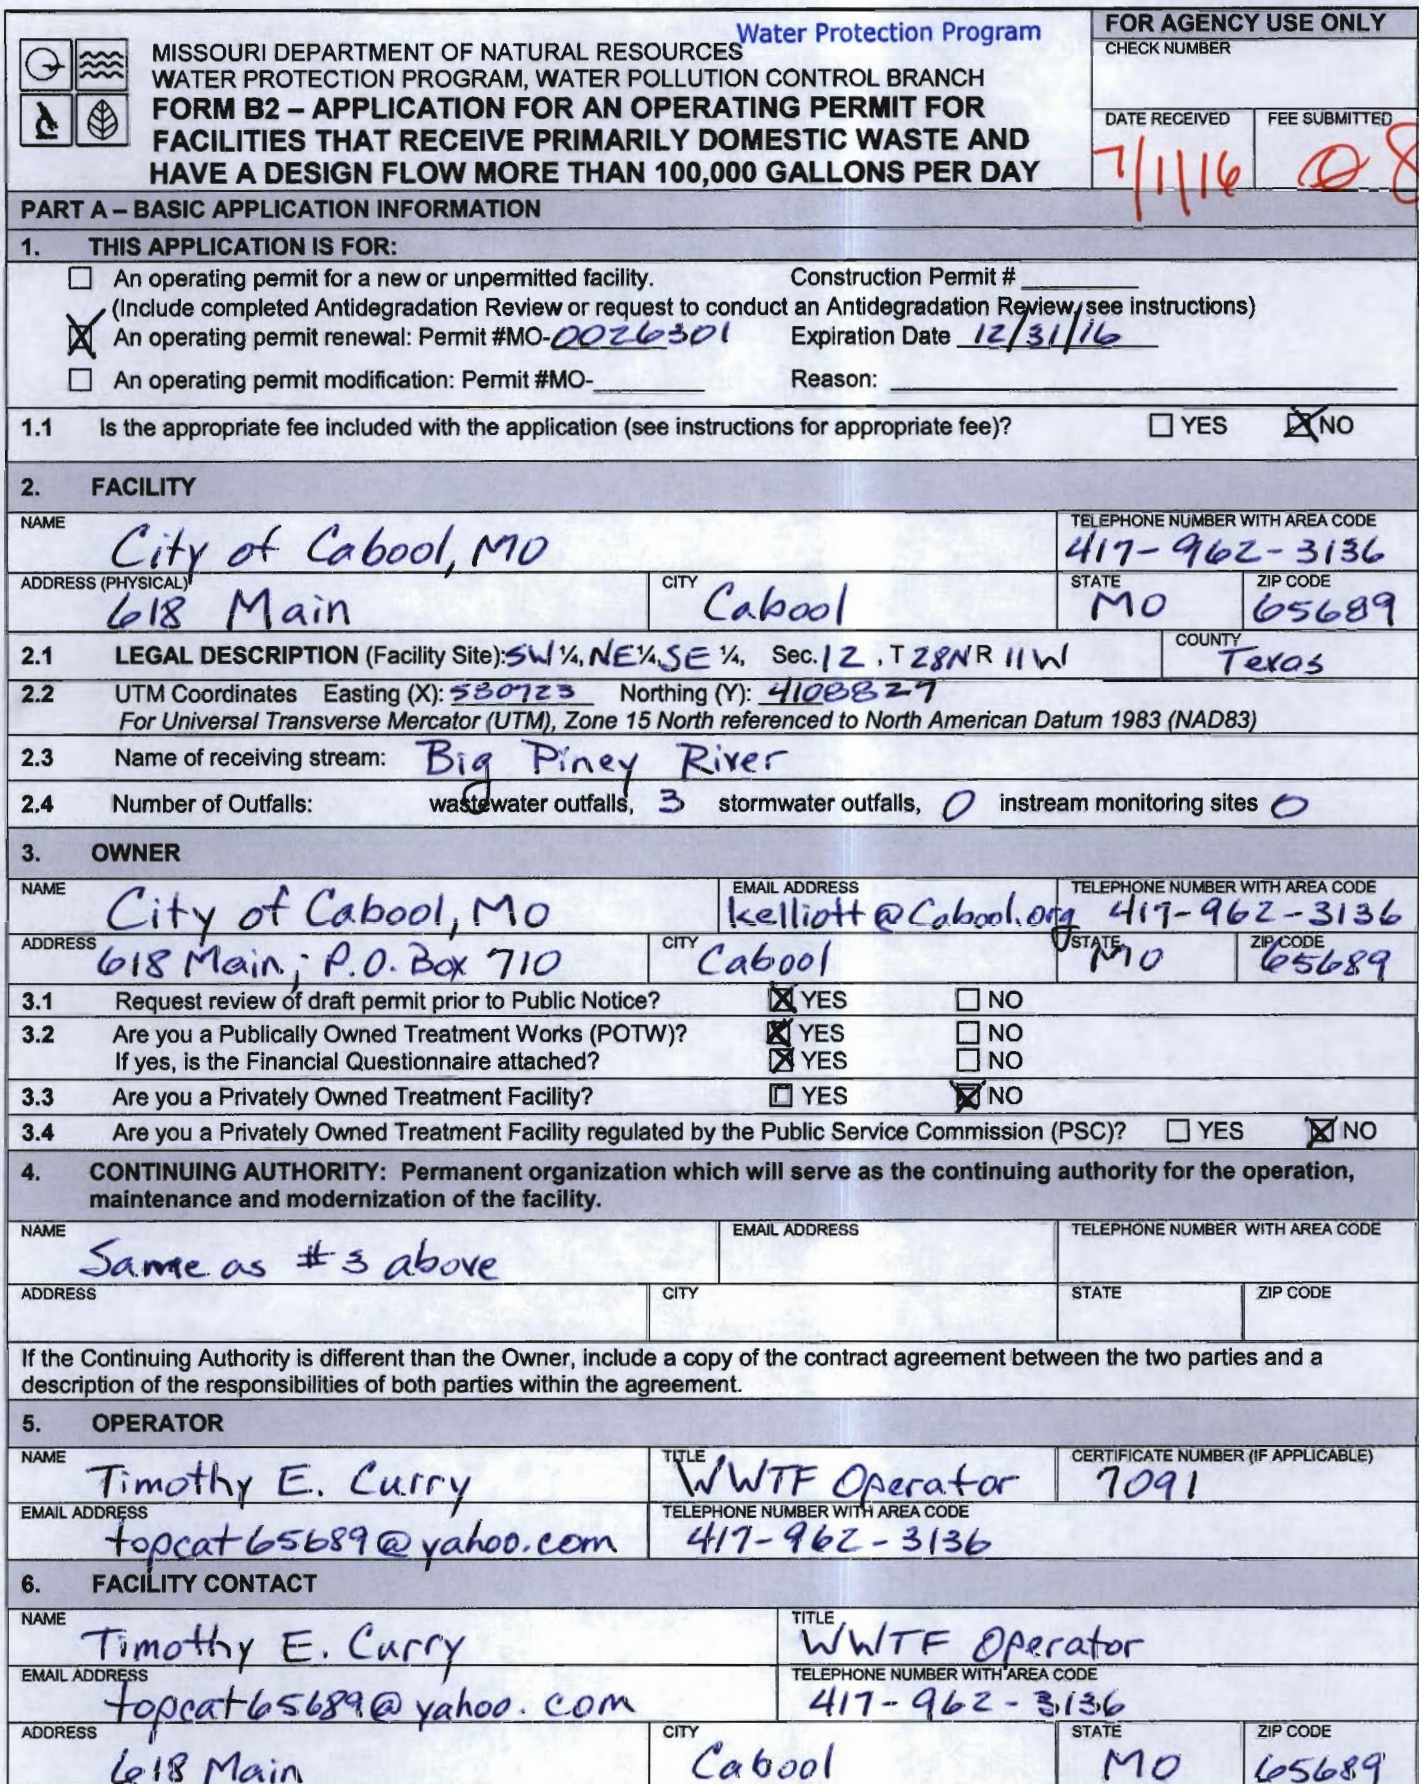 Water Protection Program
FOR AGENCY USE ONLY
MISSOURI DEPARTMENT OF NATURAL RESOURCES
WATER PROTECTION PROGRAM, WATER POLLUTION CONTROL BRANCH
FORM B2 – APPLICATION FOR AN OPERATING PERMIT FOR
FACILITIES THAT RECEIVE PRIMARILY DOMESTIC WASTE AND
HAVE A DESIGN FLOW MORE THAN 100,000 GALLONS PER DAY
CHECK NUMBER
DATE RECEIVED FEE SUBMITTED
7/1/16
PART A – BASIC APPLICATION INFORMATION
1. THIS APPLICATION IS FOR:
☐ An operating permit for a new or unpermitted facility. Construction Permit # ______
(Include completed Antidegradation Review or request to conduct an Antidegradation Review, see instructions)
☒ An operating permit renewal: Permit #MO-0026301 Expiration Date 12/31/16
☐ An operating permit modification: Permit #MO-______ Reason: ______
1.1 Is the appropriate fee included with the application (see instructions for appropriate fee)? ☐ YES ☒ NO
2. FACILITY
NAME TELEPHONE NUMBER WITH AREA CODE
City of Cabool, MO 417-962-3136
ADDRESS (PHYSICAL) CITY STATE ZIP CODE
618 Main Cabool MO 65689
2.1 LEGAL DESCRIPTION (Facility Site): SW ¼, NE ¼, SE ¼, Sec. 12 , T 28N R 11W COUNTY
Texas
2.2 UTM Coordinates Easting (X): 580723 Northing (Y): 4108827
For Universal Transverse Mercator (UTM), Zone 15 North referenced to North American Datum 1983 (NAD83)
2.3 Name of receiving stream: Big Piney River
2.4 Number of Outfalls: wastewater outfalls, 3 stormwater outfalls, 0 instream monitoring sites 0
3. OWNER
NAME EMAIL ADDRESS TELEPHONE NUMBER WITH AREA CODE
City of Cabool, MO kelliott@Cabool.org 417-962-3136
ADDRESS CITY STATE ZIP CODE
618 Main; P.O. Box 710 Cabool MO 65689
3.1 Request review of draft permit prior to Public Notice? ☒ YES ☐ NO
3.2 Are you a Publically Owned Treatment Works (POTW)? ☒ YES ☐ NO
If yes, is the Financial Questionnaire attached? ☒ YES ☐ NO
3.3 Are you a Privately Owned Treatment Facility? ☐ YES ☒ NO
3.4 Are you a Privately Owned Treatment Facility regulated by the Public Service Commission (PSC)? ☐ YES ☒ NO
4. CONTINUING AUTHORITY: Permanent organization which will serve as the continuing authority for the operation,
maintenance and modernization of the facility.
NAME EMAIL ADDRESS TELEPHONE NUMBER WITH AREA CODE
Same as #3 above
ADDRESS CITY STATE ZIP CODE
If the Continuing Authority is different than the Owner, include a copy of the contract agreement between the two parties and a
description of the responsibilities of both parties within the agreement.
5. OPERATOR
NAME TITLE CERTIFICATE NUMBER (IF APPLICABLE)
Timothy E. Curry WWTF Operator 7091
EMAIL ADDRESS TELEPHONE NUMBER WITH AREA CODE
topcat65689@yahoo.com 417-962-3136
6. FACILITY CONTACT
NAME TITLE
Timothy E. Curry WWTF Operator
EMAIL ADDRESS TELEPHONE NUMBER WITH AREA CODE
topcat65689@yahoo.com 417-962-3136
ADDRESS CITY STATE ZIP CODE
618 Main Cabool MO 65689